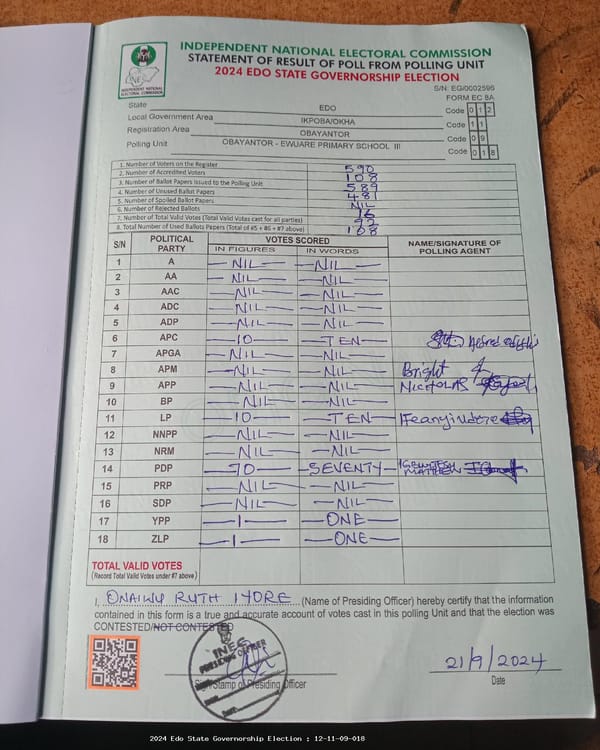 INDEPENDENT NATIONAL ELECTORAL COMMISSION
STATEMENT OF RESULT OF POLL FROM POLLING UNIT
2024 EDO STATE GOVERNORSHIP ELECTION
INDEPENDENT NATIONAL ELECTORAL COMMISSION
S/N: EG/0002596
FORM EC 8A
State EDO Code 0 1 2
Local Government Area IKPOBA/OKHA Code 1 1
Registration Area OBAYANTOR Code 0 9
Polling Unit OBAYANTOR - EWUARE PRIMARY SCHOOL III Code 0 1 8
1. Number of Voters on the Register 590
2. Number of Accredited Voters 108
3. Number of Ballot Papers Issued to the Polling Unit 589
4. Number of Unused Ballot Papers 481
5. Number of Spoiled Ballot Papers NIL
6. Number of Rejected Ballots 16
7. Number of Total Valid Votes (Total Valid Votes cast for all parties) 92
8. Total Number of Used Ballots Papers (Total of #5 + #6 + #7 above) 108
S/N POLITICAL PARTY VOTES SCORED IN FIGURES IN WORDS NAME/SIGNATURE OF POLLING AGENT
1 A NIL NIL
2 AA NIL NIL
3 AAC NIL NIL
4 ADC NIL NIL
5 ADP NIL NIL
6 APC 10 TEN
7 APGA NIL NIL
8 APM NIL NIL Bright
9 APP NIL NIL NICHOLAS
10 BP NIL NIL
11 LP 10 TEN
12 NNPP NIL NIL
13 NRM NIL NIL
14 PDP 70 SEVENTY
15 PRP NIL NIL
16 SDP NIL NIL
17 YPP 1 ONE
18 ZLP 1 ONE
TOTAL VALID VOTES
(Record Total Valid Votes under #7 above)
I, ONAIWU RUTH IYORE (Name of Presiding Officer) hereby certify that the information
contained in this form is a true and accurate account of votes cast in this polling Unit and that the election was
CONTESTED/NOT CONTESTED
INEC
PRESIDING OFFICER
Sign/Stamp of Presiding Officer
21/9/2024
Date
2024 Edo State Governorship Election : 12-11-09-018